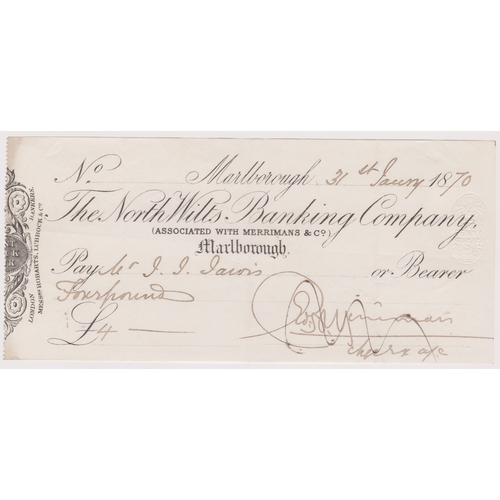 No
Marlborough 31st Jany 1870
The North Wilts Banking Company,
(ASSOCIATED WITH MERRIMANS & Co.)
Marlborough.
Pay Mr J. J. Jarvis or Bearer
Four pounds
£4
Merriman
LONDON BANKERS.
MESSRS ROBARTS, LUBBOCK & Co.